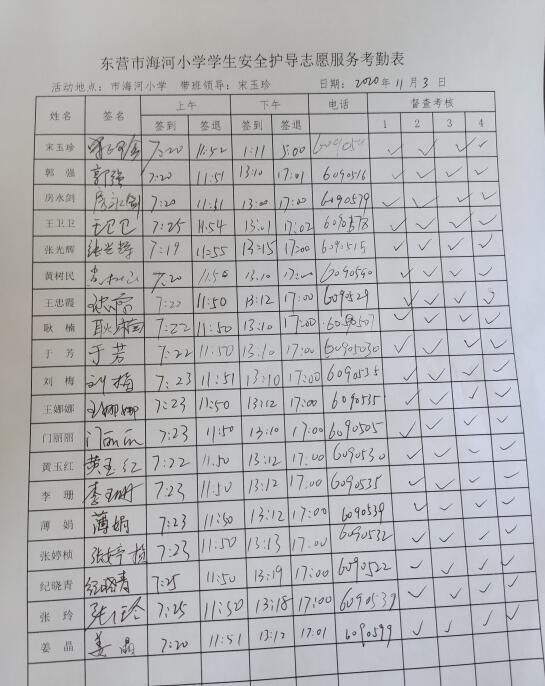 东营市海河小学学生安全护导志愿服务考勤表
活动地点：市海河小学 带班领导：宋玉珍 日期：2020年11月3日
姓名 签名 上午 下午 电话 督查考核
签到 签退 签到 签退 1 2 3 4
宋玉珍 7:20 11:52 1:11 5:00 ✓ ✓ ✓ ✓
郭强 郭强 7:20 11:51 13:10 17:01 6090516 ✓ ✓ ✓ ✓
房永剑 房永剑 7:20 11:51 13:00 17:00 6090579 ✓ ✓ ✓ ✓
王卫卫 王卫卫 7:25 11:54 13:01 17:02 ✓ ✓ ✓ ✓
张光辉 张光辉 7:19 11:55 13:15 17:00 6090515 ✓ ✓ ✓ ✓
黄树民 7:20 11:50 13:10 17:00 6090560 ✓ ✓ ✓ ✓
王忠霞 7:22 11:50 13:12 17:00 6090529 ✓ ✓ ✓ ✓
耿楠 耿楠 7:22 11:50 13:10 17:00 ✓ ✓ ✓ ✓
于芳 于芳 7:22 11:50 13:10 17:00 6090530 ✓ ✓ ✓ ✓
刘梅 刘梅 7:23 11:51 13:10 17:00 6090535 ✓ ✓ ✓ ✓
王娜娜 王娜娜 7:23 11:50 13:12 17:00 6090535 ✓ ✓ ✓ ✓
门丽丽 门丽丽 7:23 11:50 13:10 17:00 6090505 ✓ ✓ ✓ ✓
黄玉红 黄玉红 7:22 11:50 13:12 17:00 6090530 ✓ ✓ ✓ ✓
李珊 李珊 7:23 11:50 13:12 17:00 6090535 ✓ ✓ ✓ ✓
薄娟 薄娟 7:23 11:50 13:12 17:00 6090539 ✓ ✓ ✓ ✓
张婷桢 张婷桢 7:23 11:50 13:13 17:00 6090532 ✓ ✓ ✓ ✓
纪晓青 纪晓青 7:25 11:50 13:19 17:00 6090522 ✓ ✓ ✓ ✓
张玲 张玲 7:25 11:50 13:18 17:00 6090539 ✓ ✓ ✓ ✓
姜晶 姜晶 7:20 11:51 13:12 17:01 6090599 ✓ ✓ ✓ ✓